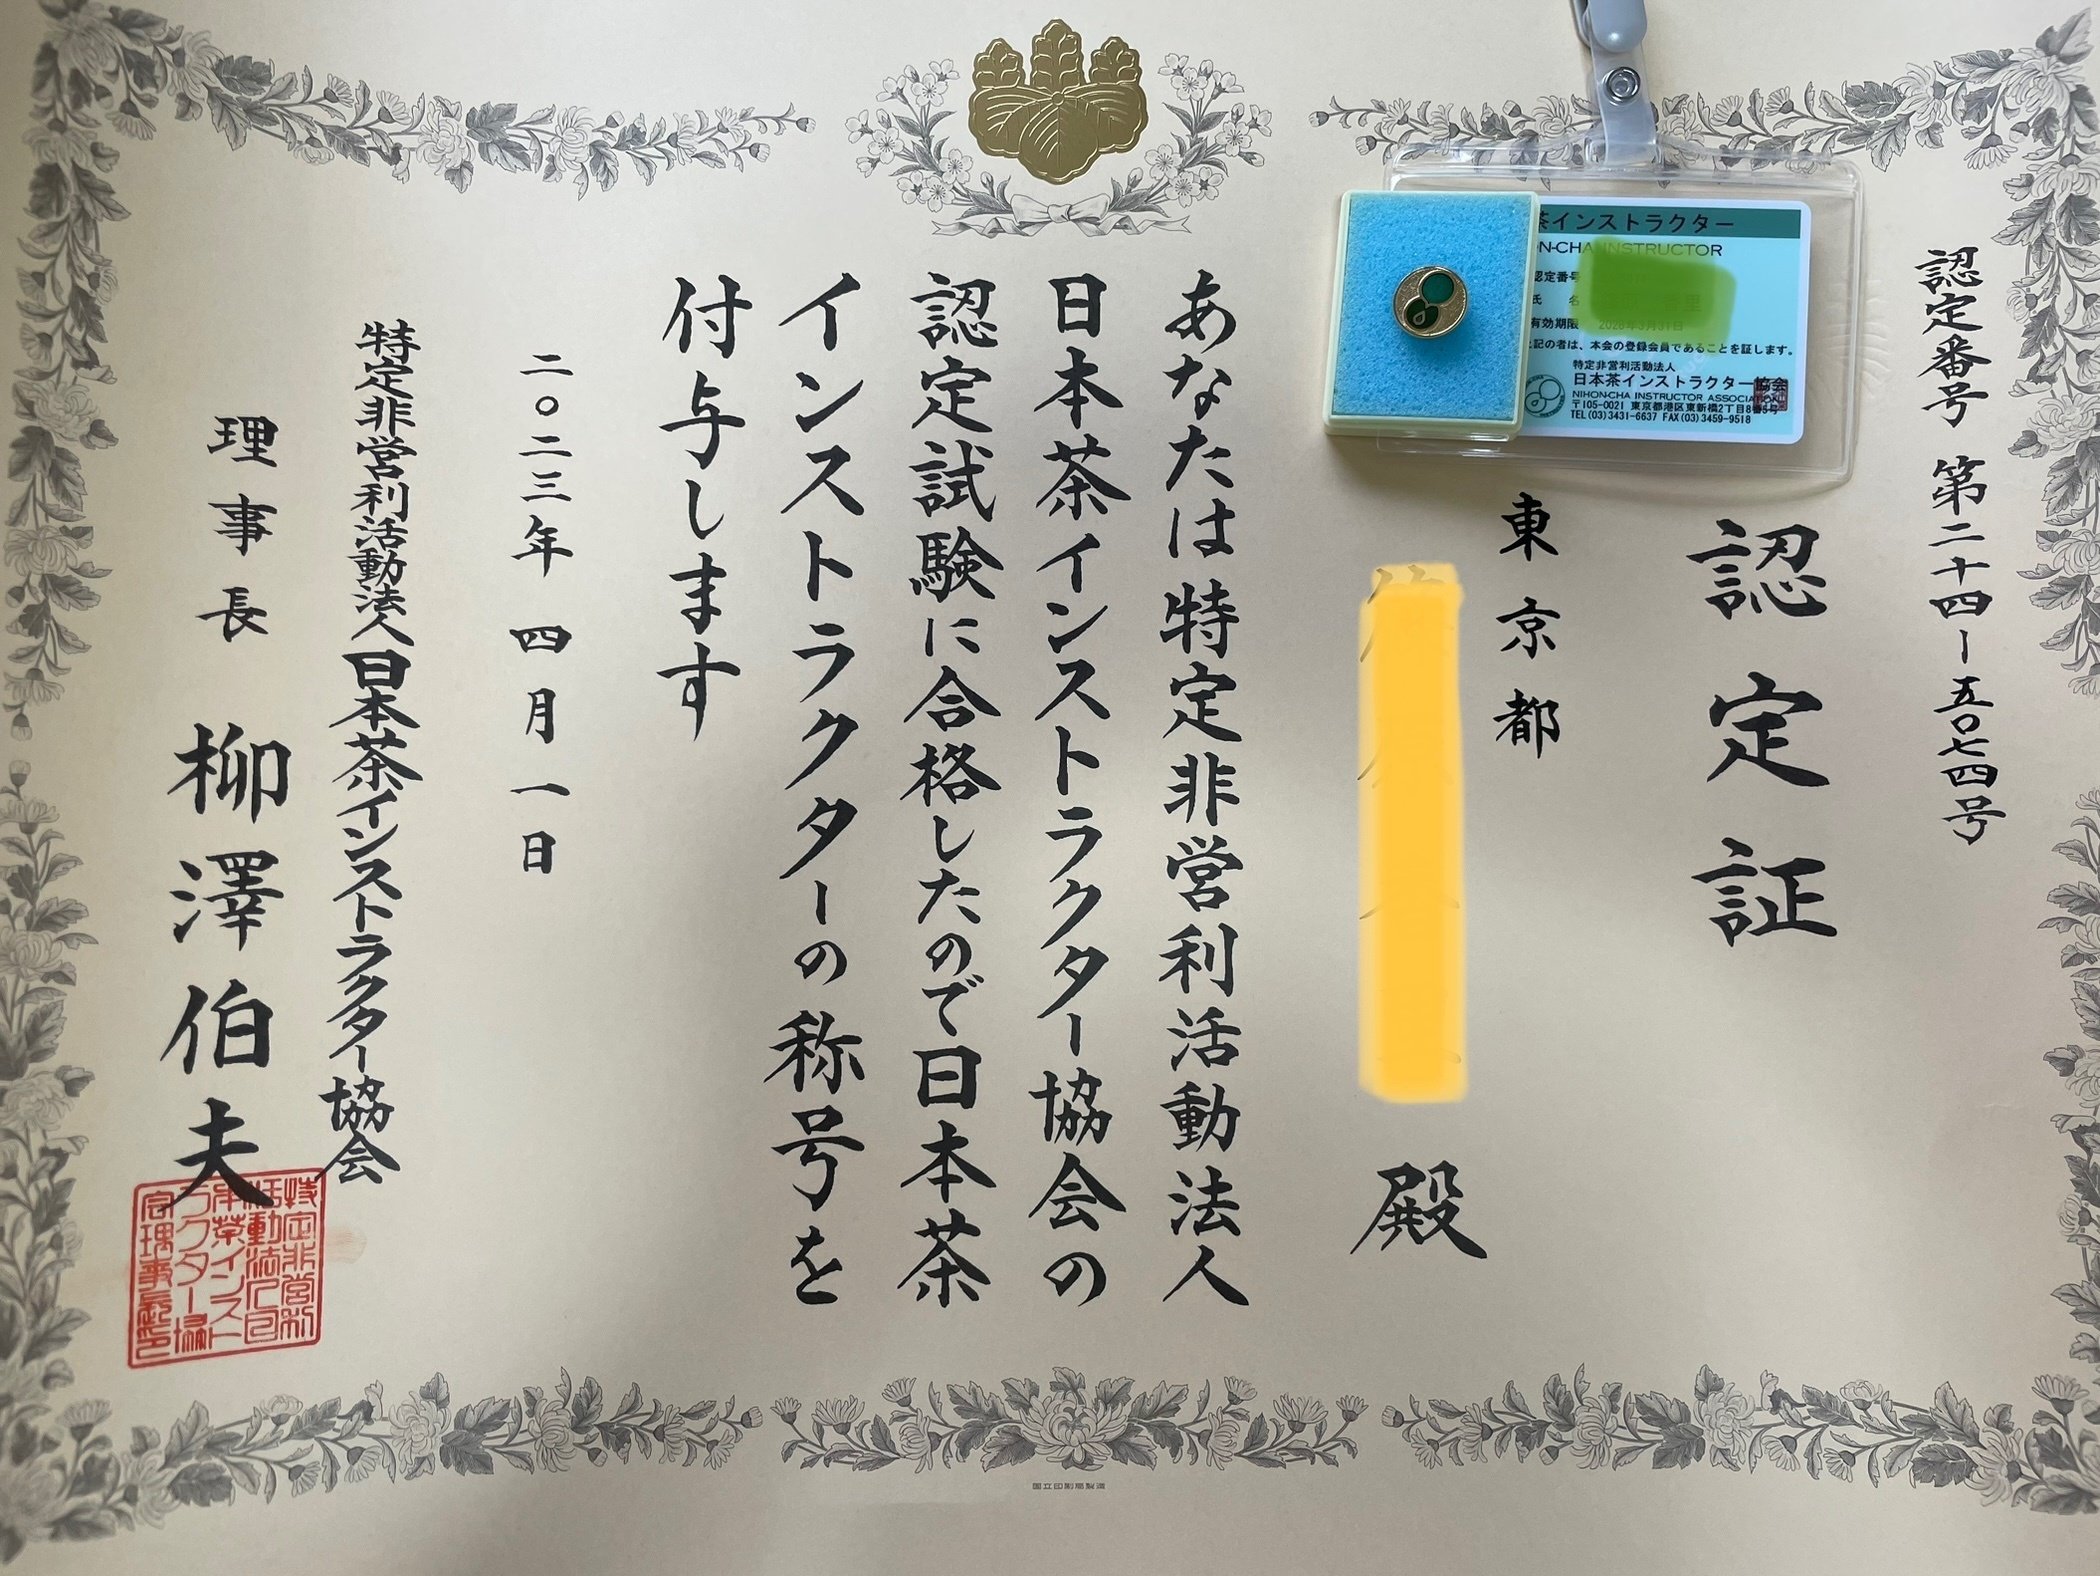 認定番号 第二十四-五〇七四号
認定証
東京都
殿
あなたは特定非営利活動法人
日本茶インストラクター協会の
認定試験に合格したので日本茶
インストラクターの称号を
付与します
二〇二三年 四月一日
特定非営利活動法人日本茶インストラクター協会
理事長 柳澤伯夫
茶インストラクター
N-CHA INSTRUCTOR
認定番号
氏 名
有効期限
記の者は、本会の登録会員であることを証します。
特定非営利活動法人
日本茶インストラクター協会
NIHON-CHA INSTRUCTOR ASSOCIATION
〒105-0021 東京都港区東新橋2丁目8番5号
TEL(03)3431-6637 FAX(03)3459-9518
特定非営利
活動法人日
本茶インスト
ラクター協
会理事長印
国立印刷局製造